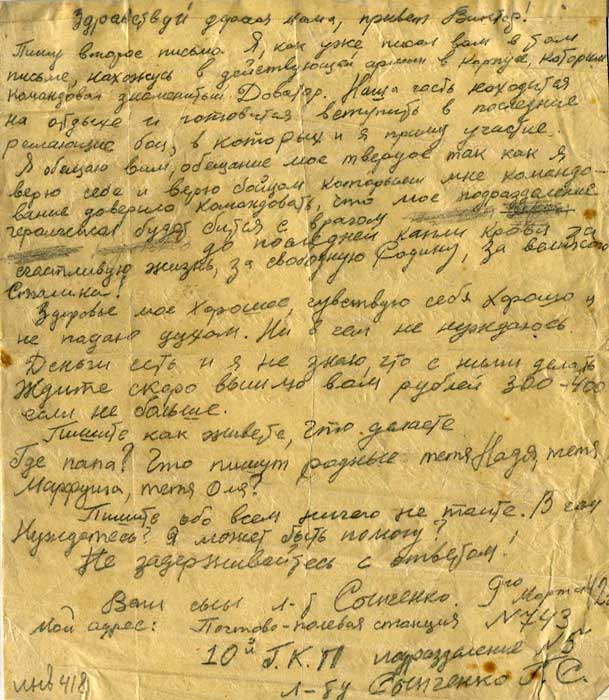 Здравствуй дорогая мама, привет Виктор!
Пишу второе письмо. Я, как уже писал вам в том
письме, нахожусь в действующей армии в корпусе, которым
командовал знаменитый Доватор. Наша часть находится
на отдыхе и готовится вступить в последние
решающие бои, в которых и я приму участие.
Я обещаю вам, обещание мое твердое так как я
верю себе и верю бойцам которыми мне командо-
вание доверило командовать, что мое подразделение
героически будет бится с врагом
до последней капли крови за
счастливую жизнь, за свободную Родину, за великого
Сталина!
Здоровье мое хорошое, чувствую себя хорошо и
не падаю духом. Ни в чем не нуждаюсь.
Деньги есть и я не знаю, что с ними делать
Ждите скоро вышлю вам рублей 300-400
если не больше.
Пишите как живете, что делаете
Где папа? Что пишут родные тетя Надя, тетя
Марфуша, тетя Оля?
Пишите обо всем ничего не таите. В чем
Нуждаетесь? Я может быть помогу?
Не задерживайтесь с ответом!
Ваш сын л-т Сыпченко. 9го Марта
Мой адрес: Почтово-полевая станция №743
10й Г.К.П подразделение №5
л-ту Сыпченко Г.С.
инв 418